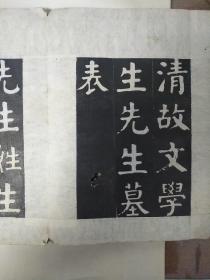 清故文學
生先生墓
表
先生姓生